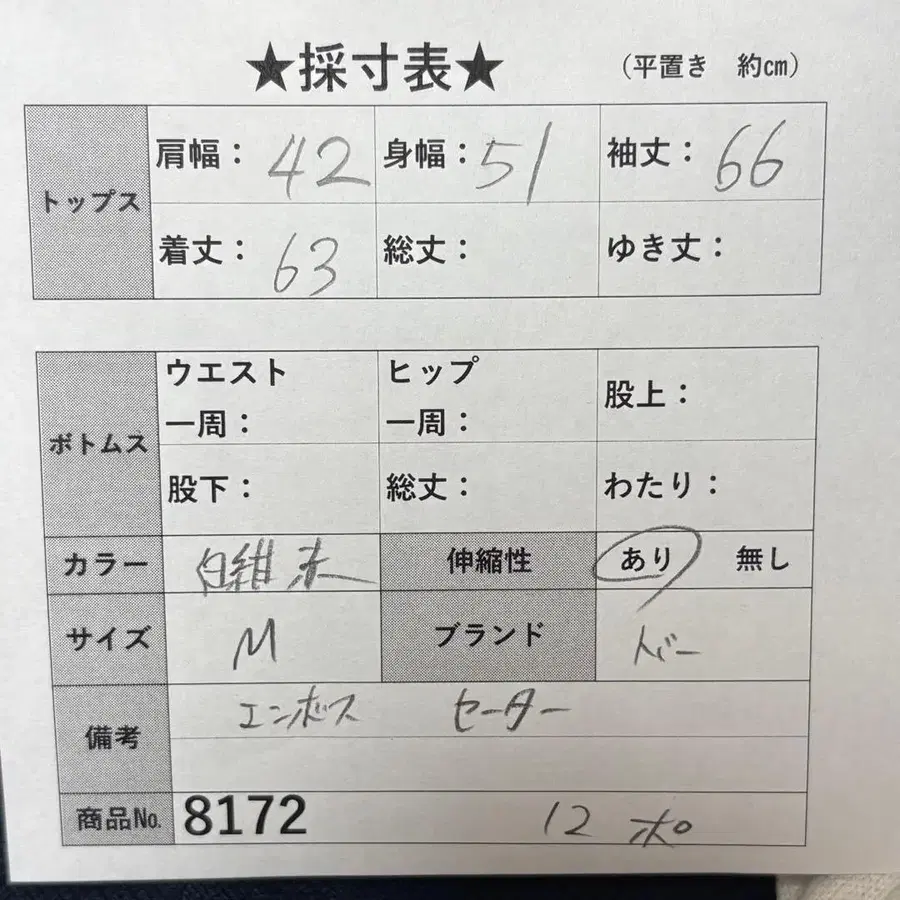 ★採寸表★ (平置き 約㎝)
トップス
肩幅： 42 身幅： 51 袖丈： 66
着丈： 63 総丈： ゆき丈：
ボトムス
ウエスト一周： ヒップ一周： 股上：
股下： 総丈： わたり：
カラー 白紺赤 伸縮性 あり 無し
サイズ M ブランド トバー
備考 エンボス セーター
商品№. 8172 12 ポ